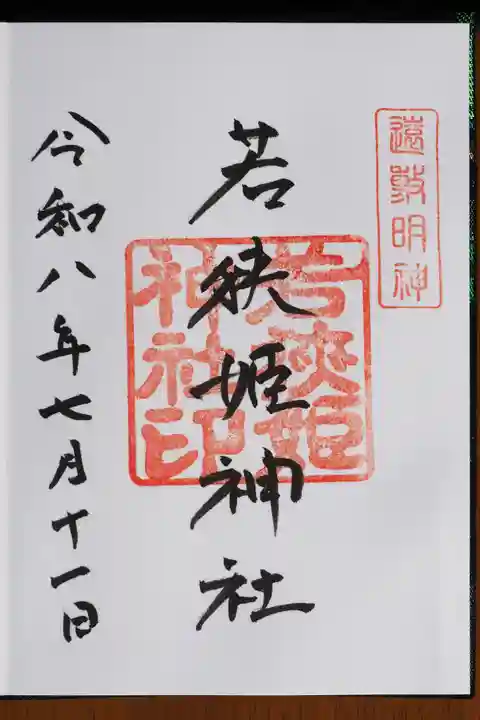 遠敷明神
若狭姫神社
若狭姫
神社印
令和八年七月十一日